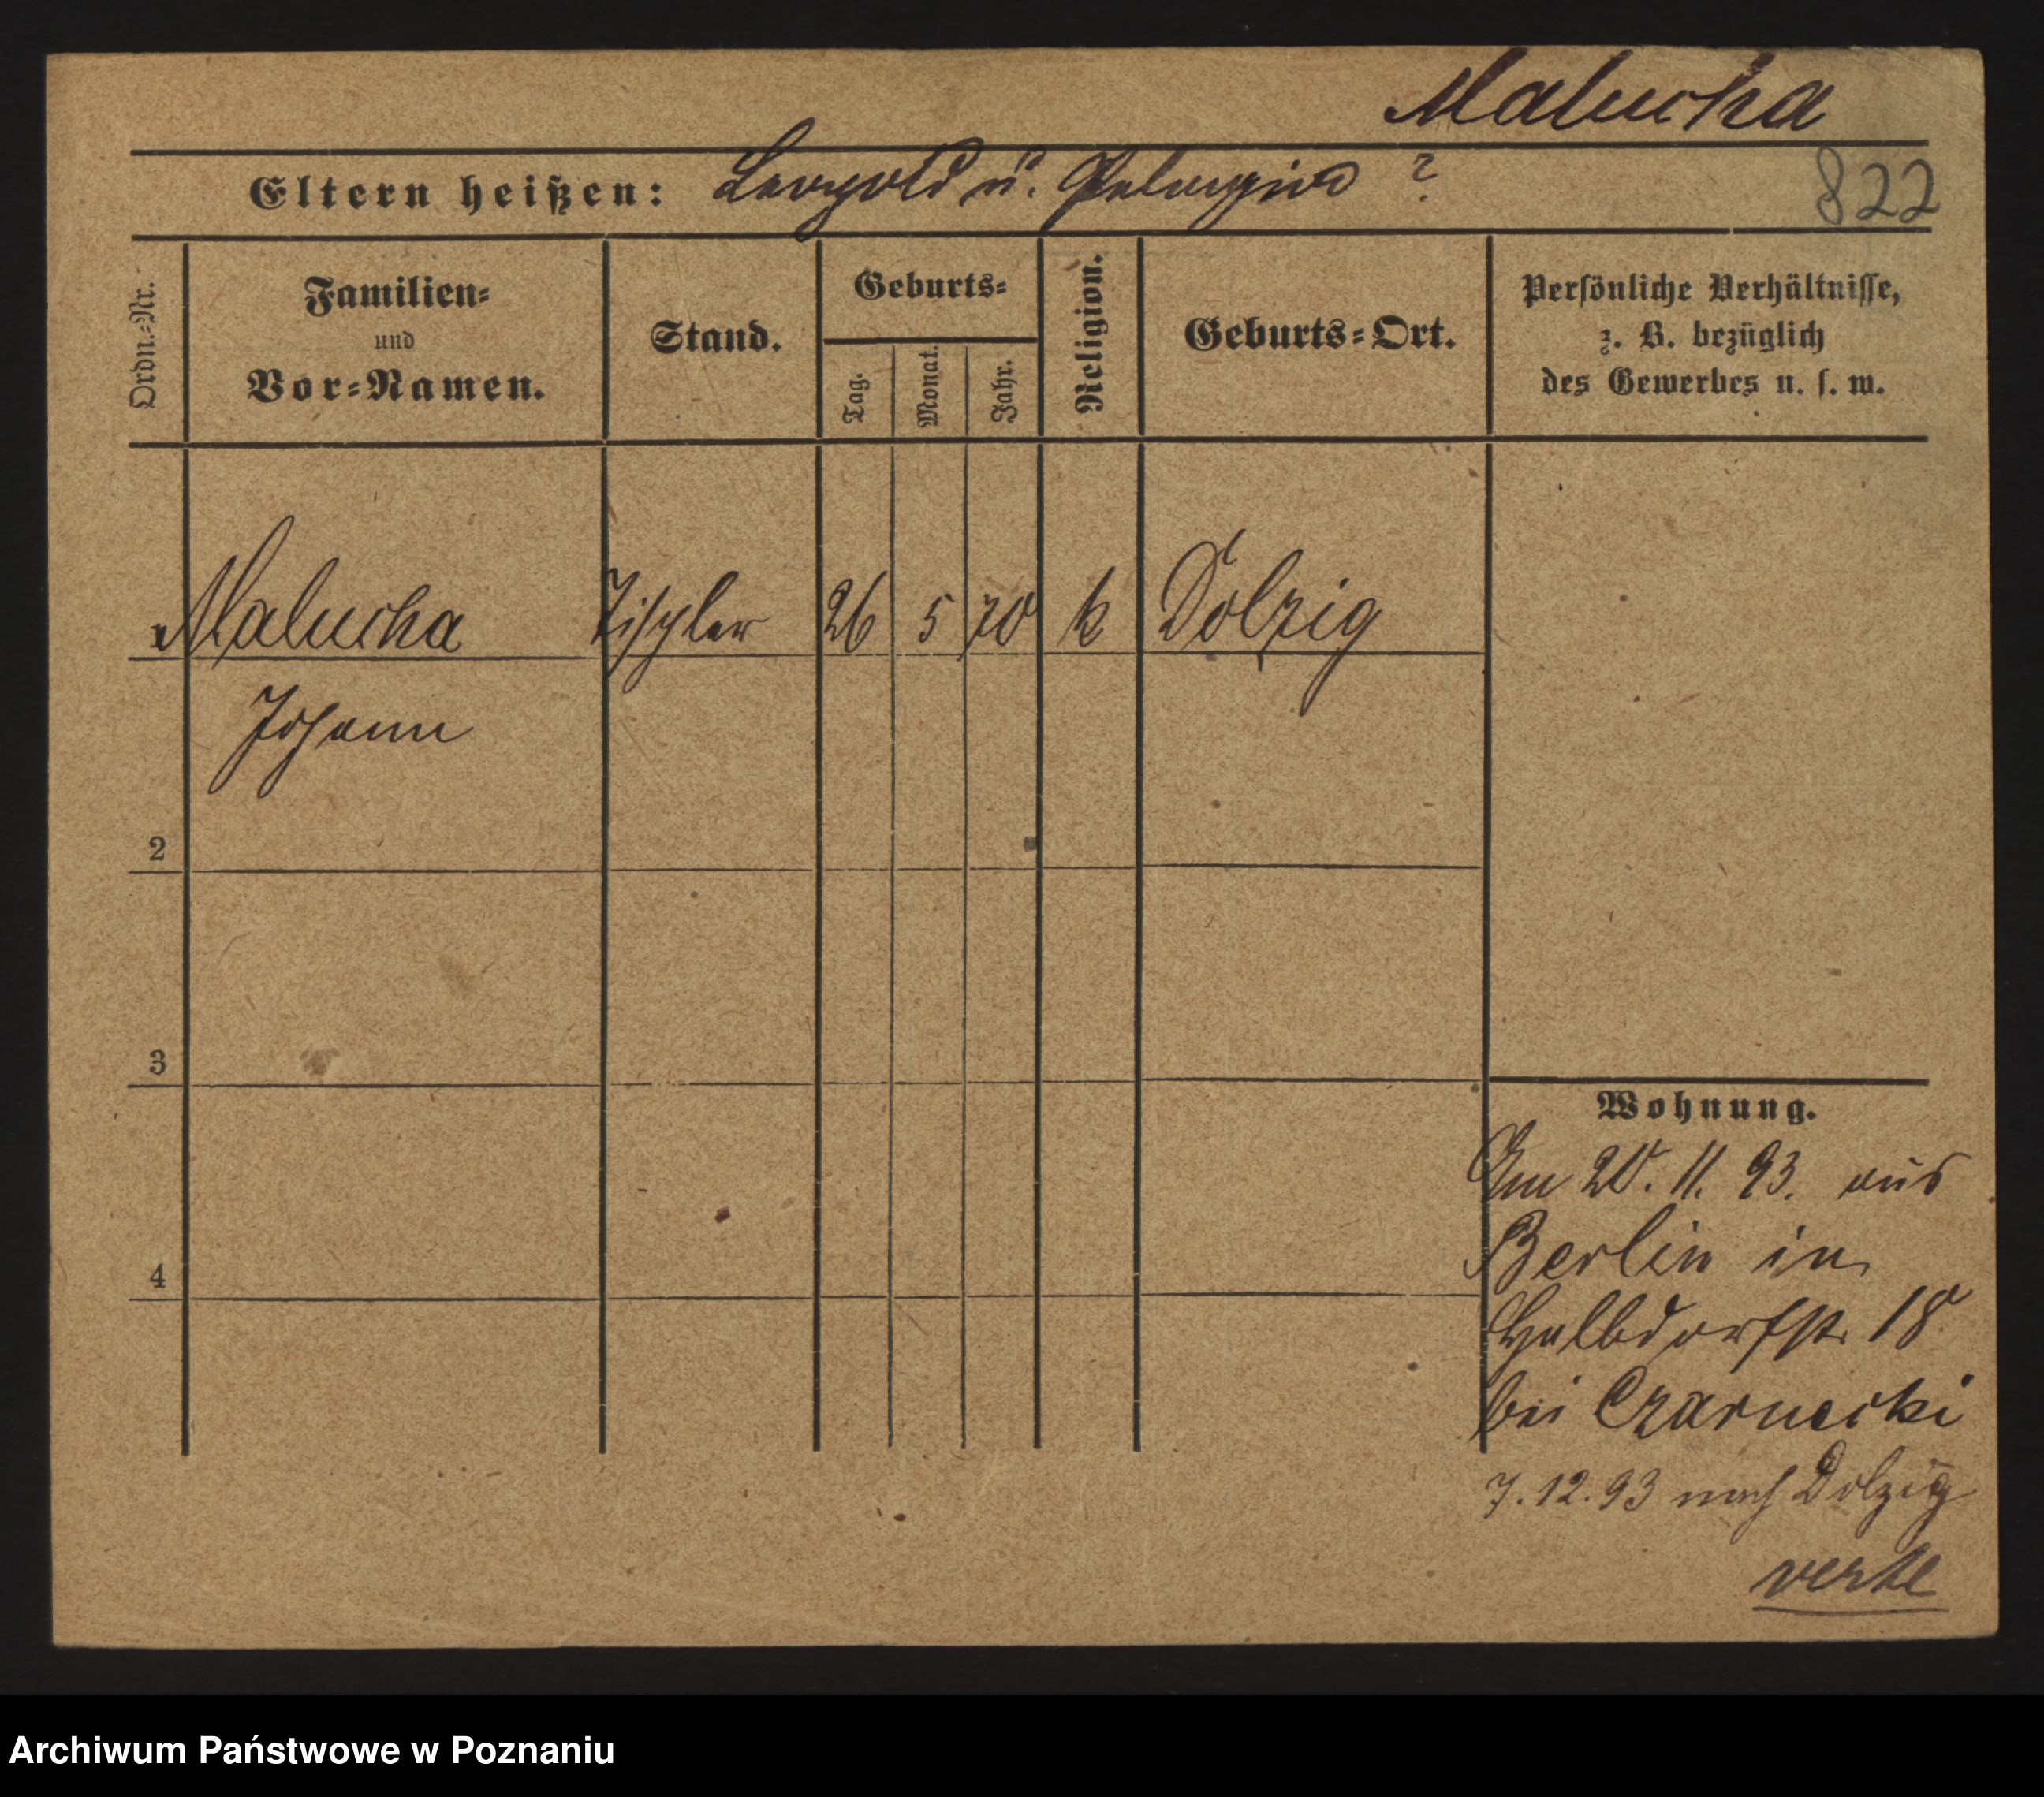 Malucha
Eltern heißen: Leopold u. Pelagia ?
822
Ordn.=Nr.
Familien=
und
Vor=Namen.
Stand.
Geburts=
Tag.
Monat.
Jahr.
Religion.
Geburts=Ort.
Persönliche Verhältnisse,
z. B. bezüglich
des Gewerbes u. s. w.
Malucha Tischler 26 5 70 k Dolzig
Johann
2
3
4
Wohnung.
Am 20. 11. 93. aus
Berlin in
Halbdorfstr 18
bei Czarnecki
7.12.93 nach Dolzig
verte
Archiwum Państwowe w Poznaniu